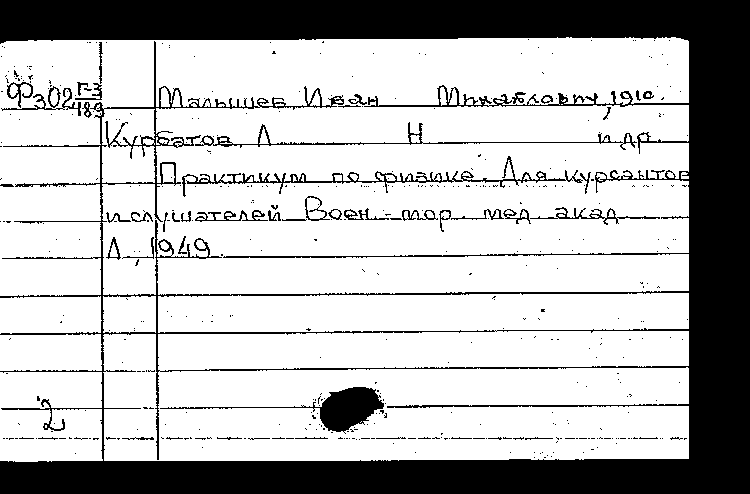 Ф302 Г-3/189 Малышев Иван Михайлович, 1910.
Курбатов Л Н и др.
Практикум по физике. Для курсантов
и слушателей Воен.-мор. мед. акад
Л., 1949.
2